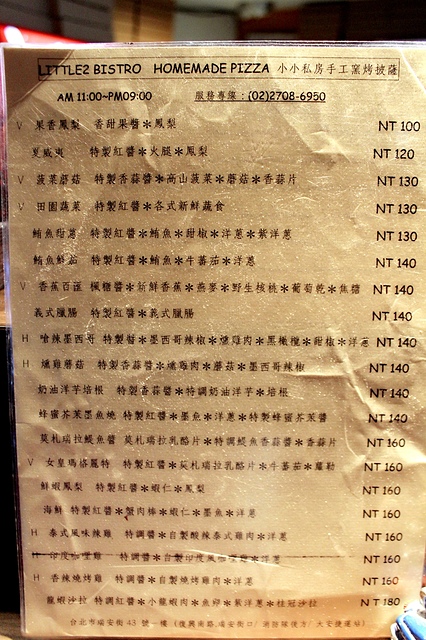 LITTLE2 BISTRO HOMEMADE PIZZA 小小私房手工窯烤披薩
AM 11:00~PM09:00 服務專線:(02)2708-6950
V 果香鳳梨 香甜果醬*鳳梨 NT 100
夏威夷 特製紅醬*火腿*鳳梨 NT 120
V 菠菜蘑菇 特製香蒜醬*高山菠菜*蘑菇*香蒜片 NT 130
V 田園蔬菜 特製紅醬*各式新鮮蔬食 NT 130
鮪魚甜蔥 特製紅醬*鮪魚*甜椒*洋蔥*紫洋蔥 NT 130
鮪魚鮮茄 特製紅醬*鮪魚*牛蕃茄*洋蔥 NT 140
V 香蕉百匯 楓糖醬*新鮮香蕉*燕麥*野生核桃*葡萄乾*焦糖 NT 140
義式臘腸 特製紅醬*義式臘腸 NT 140
H 嗆辣墨西哥 特製醬*墨西哥辣椒*燻雞肉*黑橄欖*甜椒*洋蔥 NT 140
H 燻雞蘑菇 特製香蒜醬*燻雞肉*蘑菇*墨西哥辣椒 NT 140
奶油洋芋培根 特製香蒜醬*特調奶油洋芋*培根 NT 140
蜂蜜芥茉墨魚燒 特製紅醬*墨魚*洋蔥*特製蜂蜜芥茉醬 NT 140
莫札瑞拉鯷魚醬 莫札瑞拉乳酪片*特調鯷魚香蒜醬*香蒜片 NT 160
V 女皇瑪格麗特 特製紅醬*莫札瑞拉乳酪片*牛蕃茄*羅勒 NT 160
鮮蝦鳳梨 特製紅醬*蝦仁*鳳梨 NT 160
海鮮 特製紅醬*蟹肉棒*蝦仁*墨魚*洋蔥 NT 160
H 泰式風味辣雞 特調醬*自製酸辣泰式雞肉*洋蔥 NT 160
印度咖哩雞 特調醬*自製印度風咖哩雞*洋蔥 NT 160
H 香辣燒烤雞 特調醬*自製燒烤雞肉*洋蔥 NT 160
龍蝦沙拉 特調紅醬*小龍蝦肉*魚卵*紫洋蔥*桂冠沙拉 NT 180
台北市瑞安街 43 號一樓 (復興南路.瑞安街口/ 消防隊後方/ 大安捷運站)